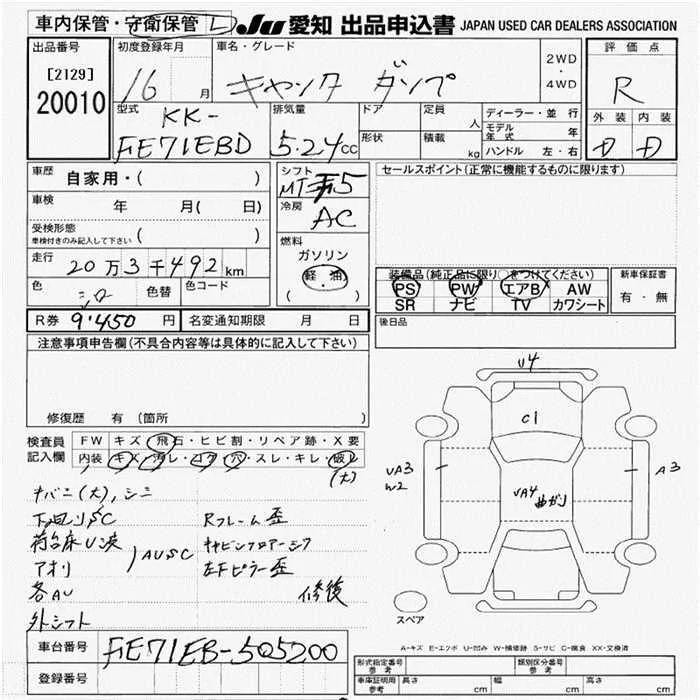 車内保管・守衛保管 L JU 愛知 出品申込書 JAPAN USED CAR DEALERS ASSOCIATION
出品番号 初度登録年月 車名・グレード 評価点
[2129] 2WD
20010 16 月 キャンター ダンプ ・ R
4WD
型式 KK- 排気量 ドア 定員 人 ディーラー・並行 外装 内装
FE71EBD 5.24cc 形状 積載 kg モデル年式 年 D D
ハンドル 左・右
車歴 自家用・( ) シフト MT 5 セールスポイント(正常に機能するものに限ります)
車検 年 月( 日) 冷房 AC
受検形態
車検付きのみ記入して下さい ( ) 燃料
ガソリン
走行 20万3千492km 軽油 装備品(純正品に限り○をつけてください) 新車保証書
色 色替 色コード ( ・ ) PS PW エアB AW 有・無
SR ナビ TV カワシート
R券 9,450円 名変通知期限 月 日 後日品
注意事項申告欄(不具合内容等は具体的に記入して下さい)
U4
C1
修復歴 有(箇所 )
検査員 FW キズ・飛石・ヒビ割・リペア跡・X要
記入欄 内装 キズ・汚レ・コゲ・穴・スレ・キレ・破レ
(大)
UA3 A3
W2
UA4 曲ガリ
(大), シミ
下回りSC Rフレーム歪
荷台床U波 キャビンフロアーシワ
アオリ AUSC 左Fピラー歪
各AU 修復
外シフト
スペア
A-キズ E-エクボ U-凹み W-補修跡 S-サビ C-腐食 XX-交換済
車台番号 FE71EB-505200
登録番号
形式指定番号 参考 類別区分番号 参考
車庫証明用 参考 長さ cm 幅 cm 高さ cm